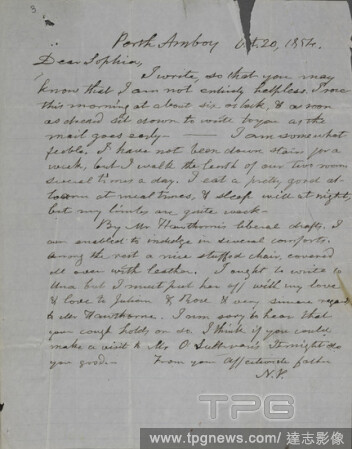 3.
Perth Amboy Oct. 20, 1854.
Dear Sophia,
I write, so that you may
know that I am not entirely helpless. I rose
this morning at about six o'clock, & as soon
as sit down to write to you as the
mail goes early — I am somewhat
feeble. I have not been down stairs for a
week, but I walk the length of our two rooms
several times a day. I eat a pretty good
at meal times, & sleep well at night,
but my limbs are quite weak.
By Mr Hawthorne's liberal drafts, I
am enabled to indulge in several comforts.
Among the rest a nice stuffed chair, covered
all over with leather. I ought to write to
Una but I must put her off with my love
& love to Julian & Rose & very sincere regard
to Mr Hawthorne. I am sorry to hear that
your cough holds on so. I think if you could
make a visit to Mr O Sullivan's it might do
you good — From your affectionate father
N.P.
TPG
www.tpgnews.com / 達志影像